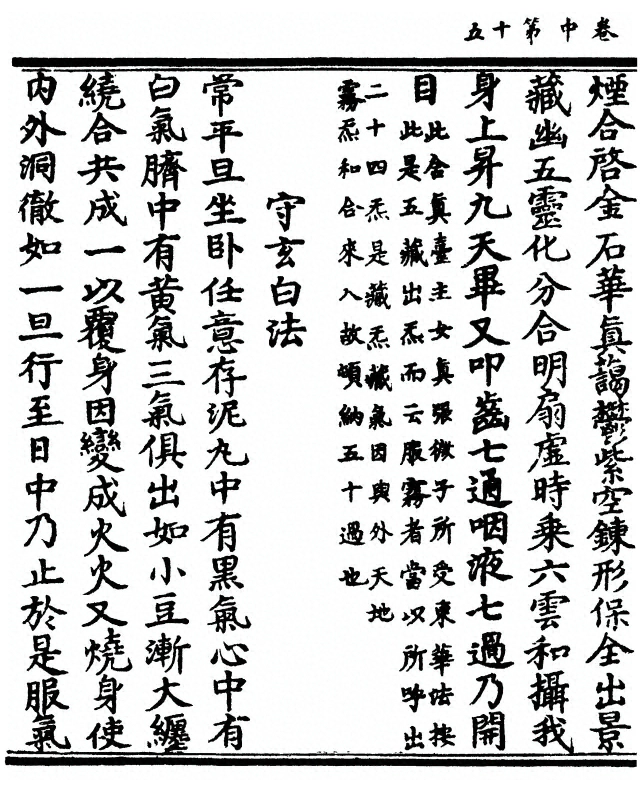 卷中第十五
煙合啓金石華眞藹鬱紫空鍊形保全出景
藏幽五靈化分合明扇虛時乗六雲和攝我
身上昇九天畢又叩齒七通咽液七過乃開
目
此含眞臺主女眞張微子所受東華法按
此是五藏出炁而云服霧者當以所呼出
二十四炁是藏炁藏氣因與外天地
霧炁和合來入故頓納五十過也
守玄白法
常平旦坐卧任意存泥丸中有黒氣心中有
白氣臍中有黄氣三氣俱出如小豆漸大纏
繞合共成一以覆身因變成火火又燒身使
内外洞徹如一旦行至日中乃止於是服氣